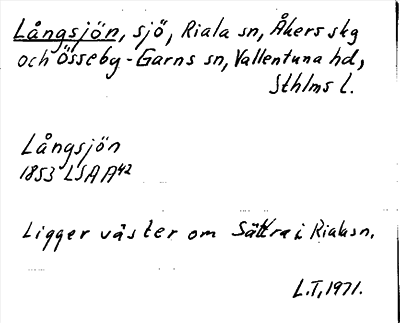 Långsjön, sjö, Riala sn, Åkers skg
och Össeby-Garns sn, Vallentuna hd,
Sthlms l.
Långsjön
1853 LSA A42
Ligger väster om Sättra i Riala sn.
L.T, 1971.